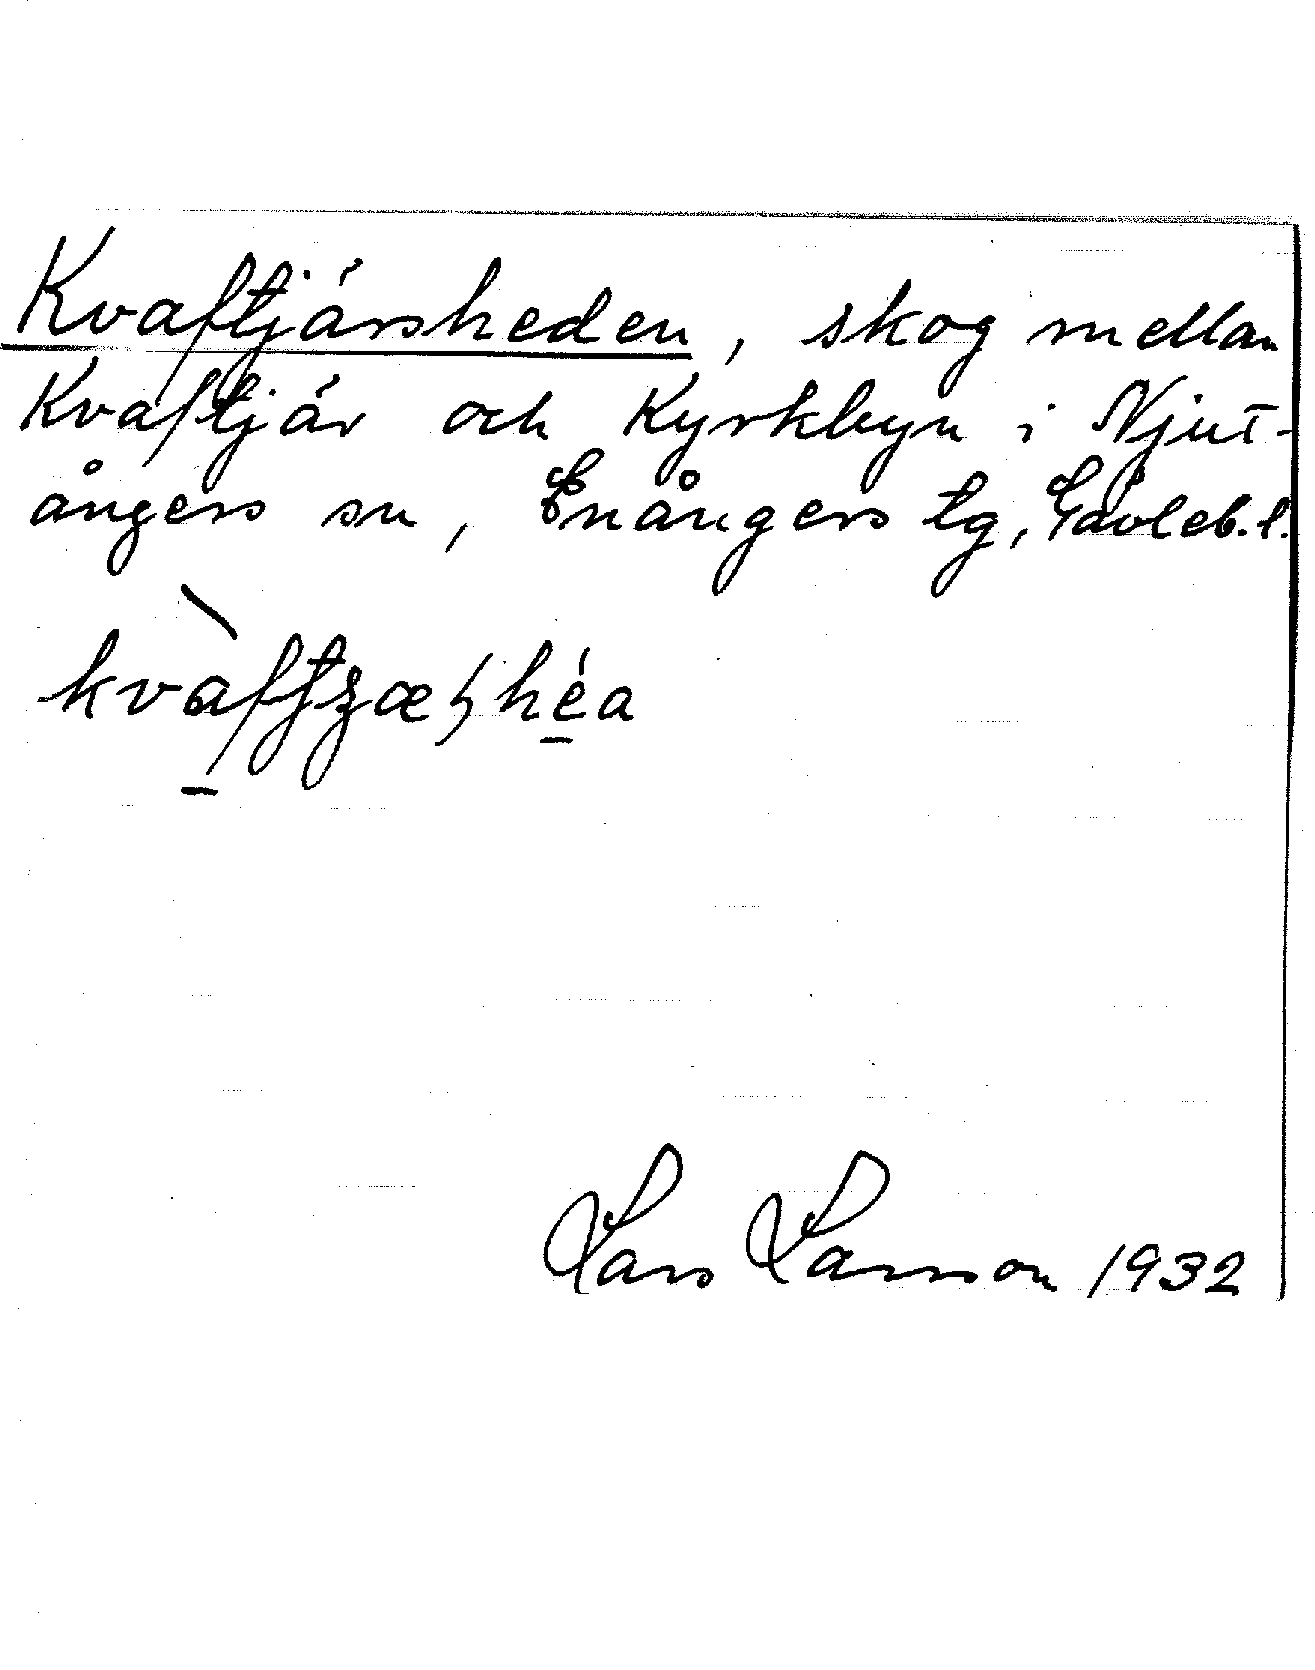 Kvaftjärsheden, skog mellan
Kvaftjär och Kyrkbyn i Njut-
ångers sn, Enångers tg, Gävleb. l.
Lars Larsson 1932